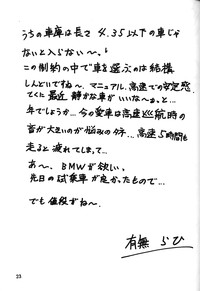 うちの車庫は長さ4.35以下の車じゃ
ないと入らない〜。
この制約の中で車を選ぶのは結構
しんどいですね〜。マニュアル、高速での安定感、
てくに最近 静かな車がいいな〜。と…
年でしょうか…今の愛車は高速巡航時の
音が大きいのが悩みのタネ…高速5時間も
走ると疲れてしまって…
あ〜、BMWが欲しい。
先日の試乗車が良かったもので…
でも値段ずね〜
有無 らひ
23